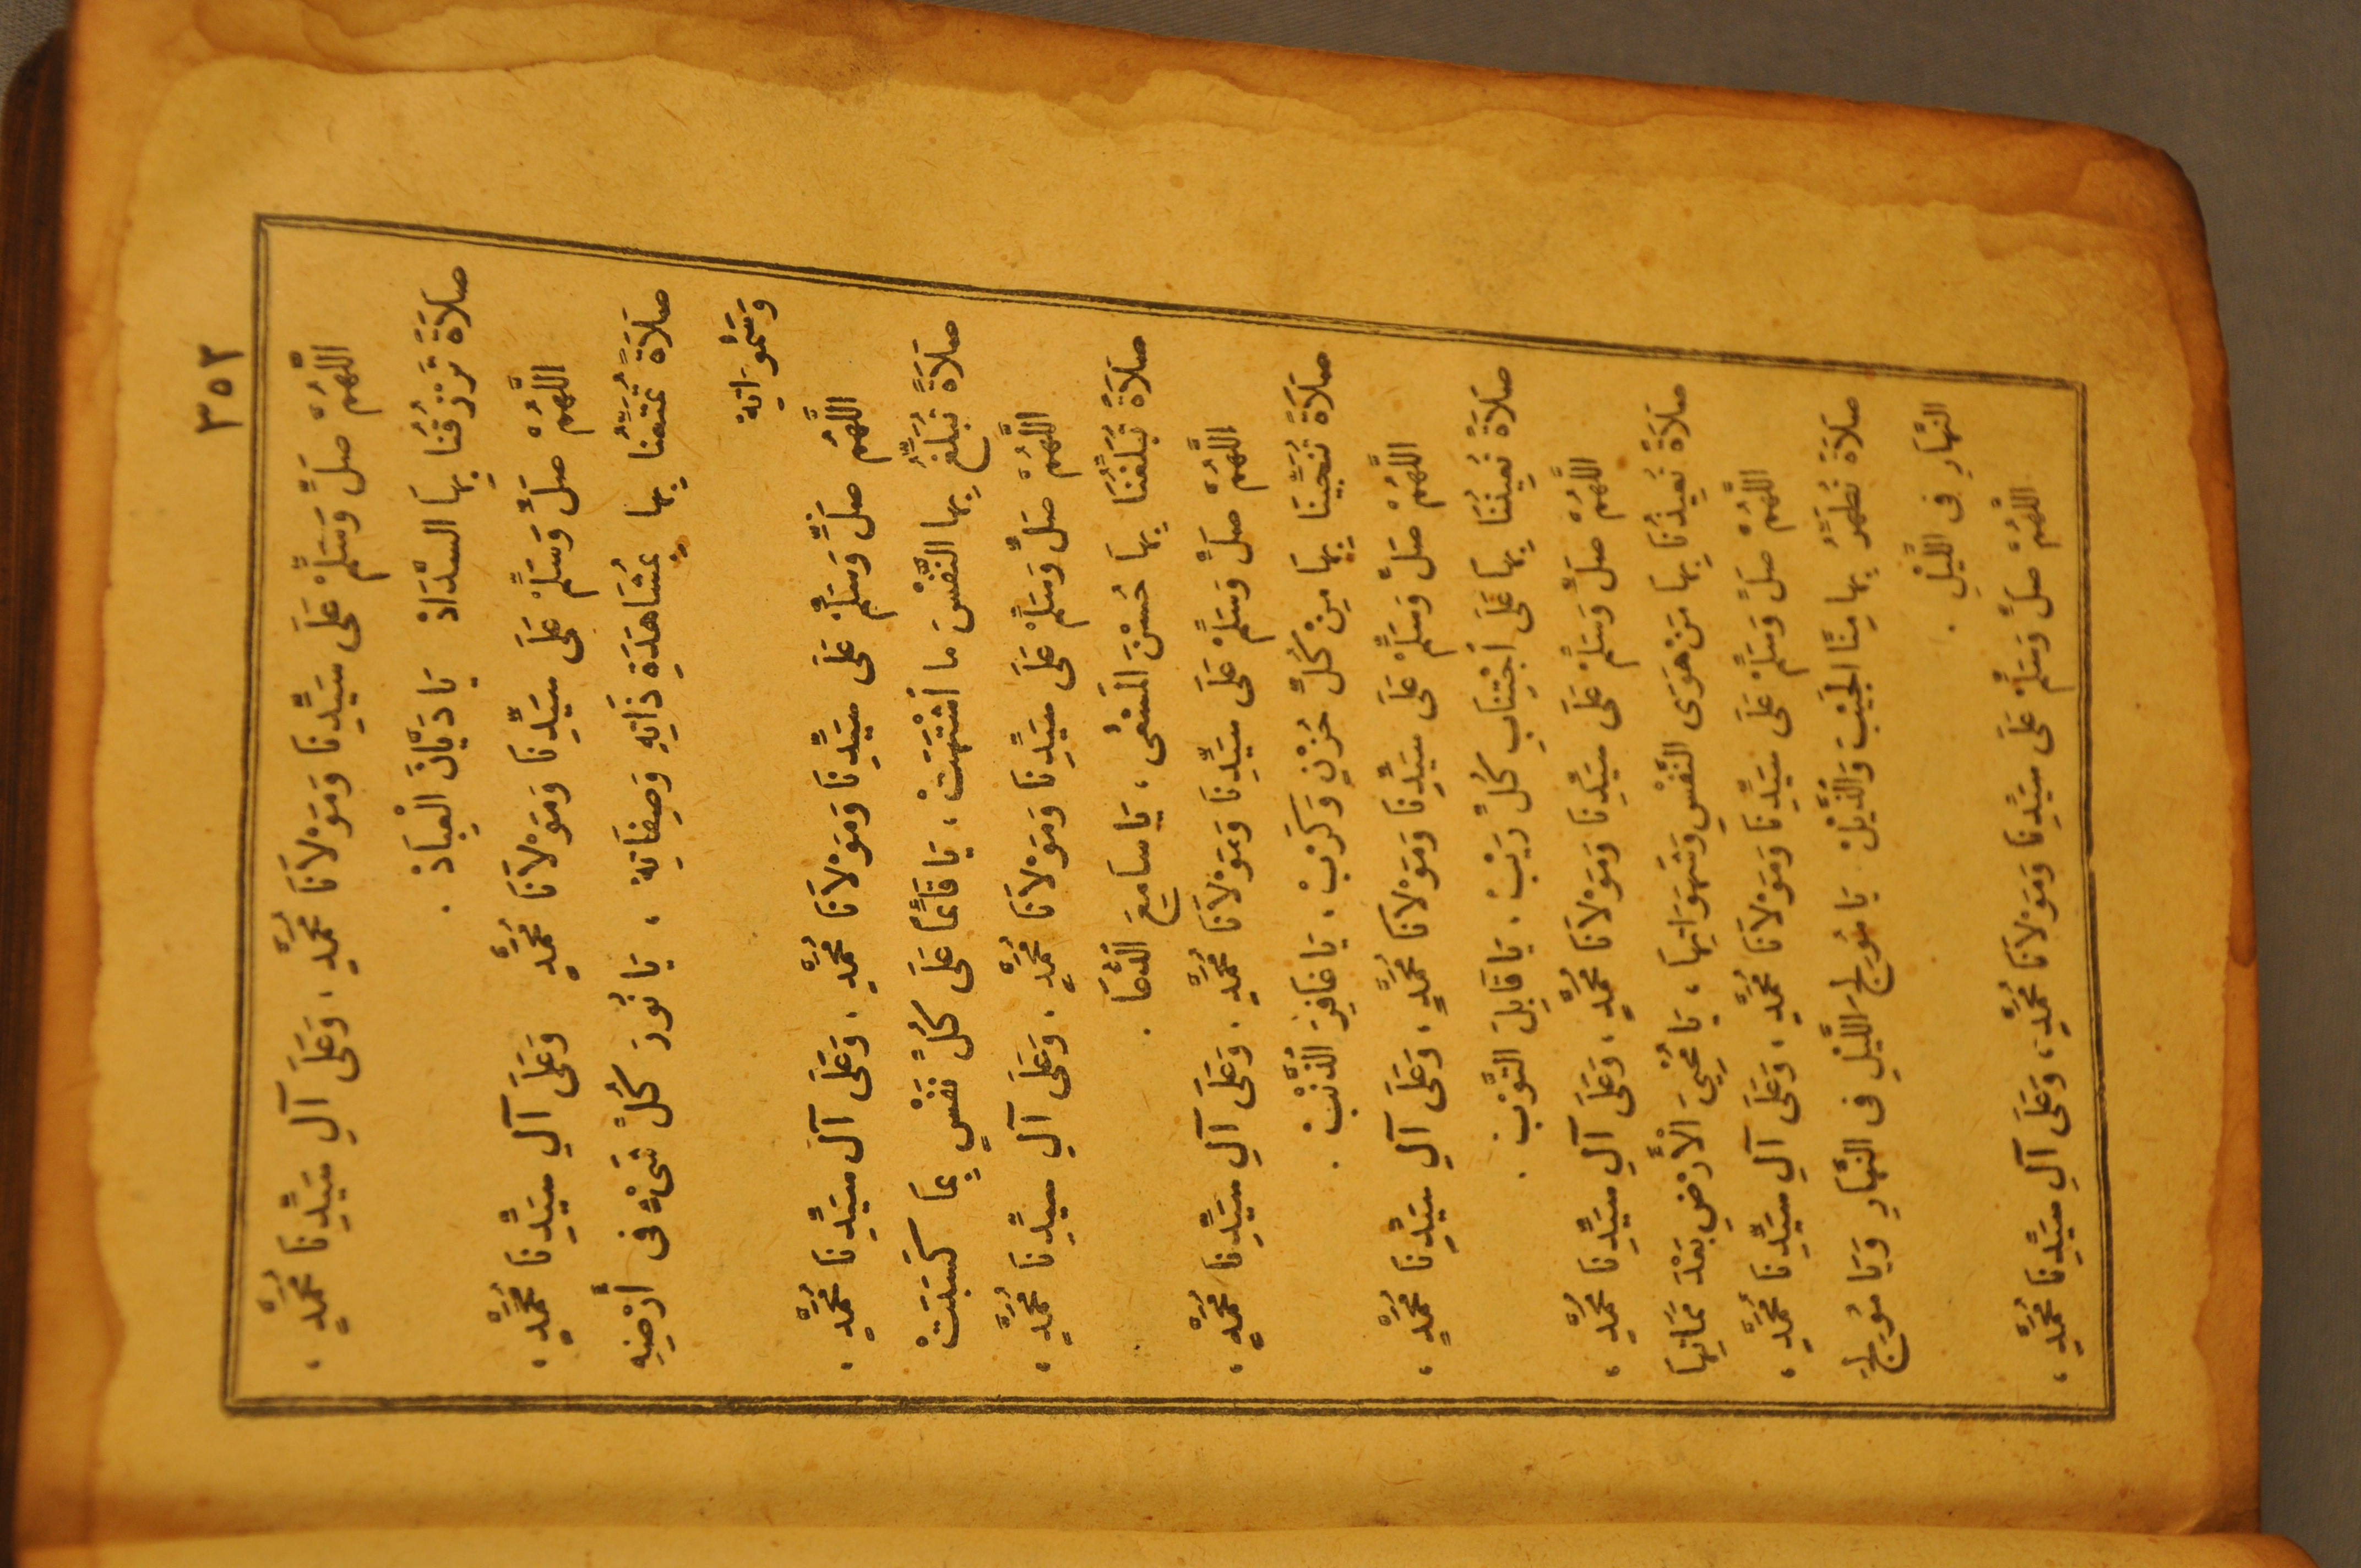 ٣٥٢
اللَّهُمَّ صَلِّ وَسَلِّمْ عَلَى سَيِّدِنَا وَمَوْلَانَا مُحَمَّدٍ ، وَعَلَى آلِ سَيِّدِنَا مُحَمَّدٍ ،
صَلَاةً تَرْزُقُنَا بِهَا السَّدَادْ يَا دَيَّانَ الْعِبَادْ .
اللَّهُمَّ صَلِّ وَسَلِّمْ عَلَى سَيِّدِنَا وَمَوْلَانَا مُحَمَّدٍ وَعَلَى آلِ سَيِّدِنَا مُحَمَّدٍ ،
صَلَاةً تُمَتِّعُنَا بِهَا بِمُشَاهَدَةِ ذَاتِهِ وَصِفَاتِهْ ، يَا نُورَ كُلِّ شَىْءٍ فِى أَرْضِهِ
وَسَمٰوَاتِهْ
اللَّهُمَّ صَلِّ وَسَلِّمْ عَلَى سَيِّدِنَا وَمَوْلَانَا مُحَمَّدٍ ، وَعَلَى آلِ سَيِّدِنَا مُحَمَّدٍ ،
صَلَاةً تُبَلِّغُ بِهَا النَّفْسَ مَا اشْتَهَتْ ، يَا قَائِمًا عَلَى كُلِّ نَفْسٍ بِمَا كَسَبَتْ
اللَّهُمَّ صَلِّ وَسَلِّمْ عَلَى سَيِّدِنَا وَمَوْلَانَا مُحَمَّدٍ ، وَعَلَى آلِ سَيِّدِنَا مُحَمَّدٍ ،
صَلَاةً تُبَلِّغُنَا بِهَا حُسْنَ الْمَسْعَى ، يَا سَامِعَ الدُّعَا .
اللَّهُمَّ صَلِّ وَسَلِّمْ عَلَى سَيِّدِنَا وَمَوْلَانَا مُحَمَّدٍ ، وَعَلَى آلِ سَيِّدِنَا مُحَمَّدٍ ،
صَلَاةً تُنَجِّينَا بِهَا مِنْ كُلِّ حُزْنٍ وَكَرْبْ ، يَا غَافِرَ الذَّنْبْ .
اللَّهُمَّ صَلِّ وَسَلِّمْ عَلَى سَيِّدِنَا وَمَوْلَانَا مُحَمَّدٍ ، وَعَلَى آلِ سَيِّدِنَا مُحَمَّدٍ ،
صَلَاةً تُعِينُنَا بِهَا عَلَى اجْتِنَابِ كُلِّ رَيْبْ ، يَا قَابِلَ التَّوْبْ .
اللَّهُمَّ صَلِّ وَسَلِّمْ عَلَى سَيِّدِنَا وَمَوْلَانَا مُحَمَّدٍ ، وَعَلَى آلِ سَيِّدِنَا مُحَمَّدٍ ،
صَلَاةً تُعِيذُنَا بِهَا مَنْ هَوَى النَّفْسِ وَشَهَوَاتِهَا ، يَا مُحْيِىَ الْأَرْضِ بَعْدَ مَمَاتِهَا
اللَّهُمَّ صَلِّ وَسَلِّمْ عَلَى سَيِّدِنَا وَمَوْلَانَا مُحَمَّدٍ ، وَعَلَى آلِ سَيِّدِنَا مُحَمَّدٍ ،
صَلَاةً تُطَهِّرُ بِهَا مِنَّا الْجَيْبَ وَالذَّيْلْ يَا مُولِجَ اللَّيْلِ فِى النَّهَارِ وَيَا مُولِجَ
النَّهَارِ فِى اللَّيْلِ .
اللَّهُمَّ صَلِّ وَسَلِّمْ عَلَى سَيِّدِنَا وَمَوْلَانَا مُحَمَّدٍ ، وَعَلَى آلِ سَيِّدِنَا مُحَمَّدٍ ،